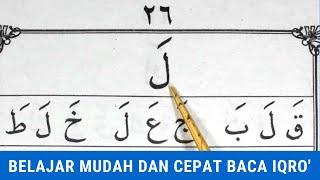 ٢٦
لَ
قَ لَ بَ جَ عَ لَ خَ لَ طَ
BELAJAR MUDAH DAN CEPAT BACA IQRO'